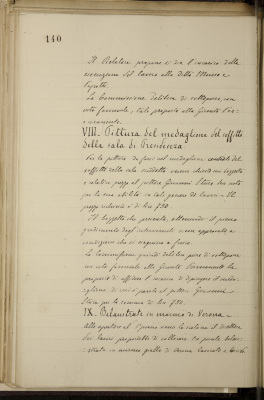 140
Il Relatore propone si dia l'incarico della
esecuzione del lavoro alla ditta Musso e
Papotti.
La Commissione delibera di sottoporre, con
voto favorevole, tale proposta alla Giunta
VIII. Pittura del medaglione del soffitto
della sala di Presidenza
Per la pittura da farsi nel medaglione centrale del
soffitto della sala suddetta venne chiesto un bozzetto
e relativo prezzo al pittore Giovanni noto
per la sua abilità in tale genere di lavori - Il
prezzo richiesto è di lire 750.
Il bozzetto che presenta, ottenendo il pieno
gradimento degli intervenuti viene approvato a
condizione che si eseguisca a fresco.
La Commissione quindi delibera pure di sottoporre
con voto favorevole alla Giunta la
proposta di affidare l'incarico di dipingere il meda-
glione di cui è parola al pittore Giovanni
per la somma di lire 750.
IX. Balaustrate in marmo di Verona -